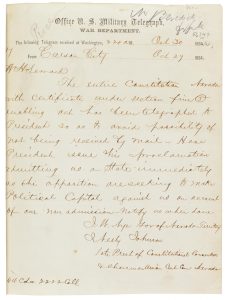 Office U. S. Military Telegraph,
WAR DEPARTMENT.
The following Telegram received at Washington, M. Oct 30 1864.
From Carson City
Oct 29 1864.
The entire Constitution Nevada
with Certificate under section five
enabling act has been telegraphed to
President so as to avoid possibility of
not being received by mail. Has
President issued his proclamation
admitting us as State immediately
as the opposition are seeking to make
Political Capital against us on account
of our non admission. Notify us when done
J. W. Nye Gov of Nevada Territory
J. Neely Johnson
late Prest of Constitutional Convention
& Chairman Union Cent Com Nevada